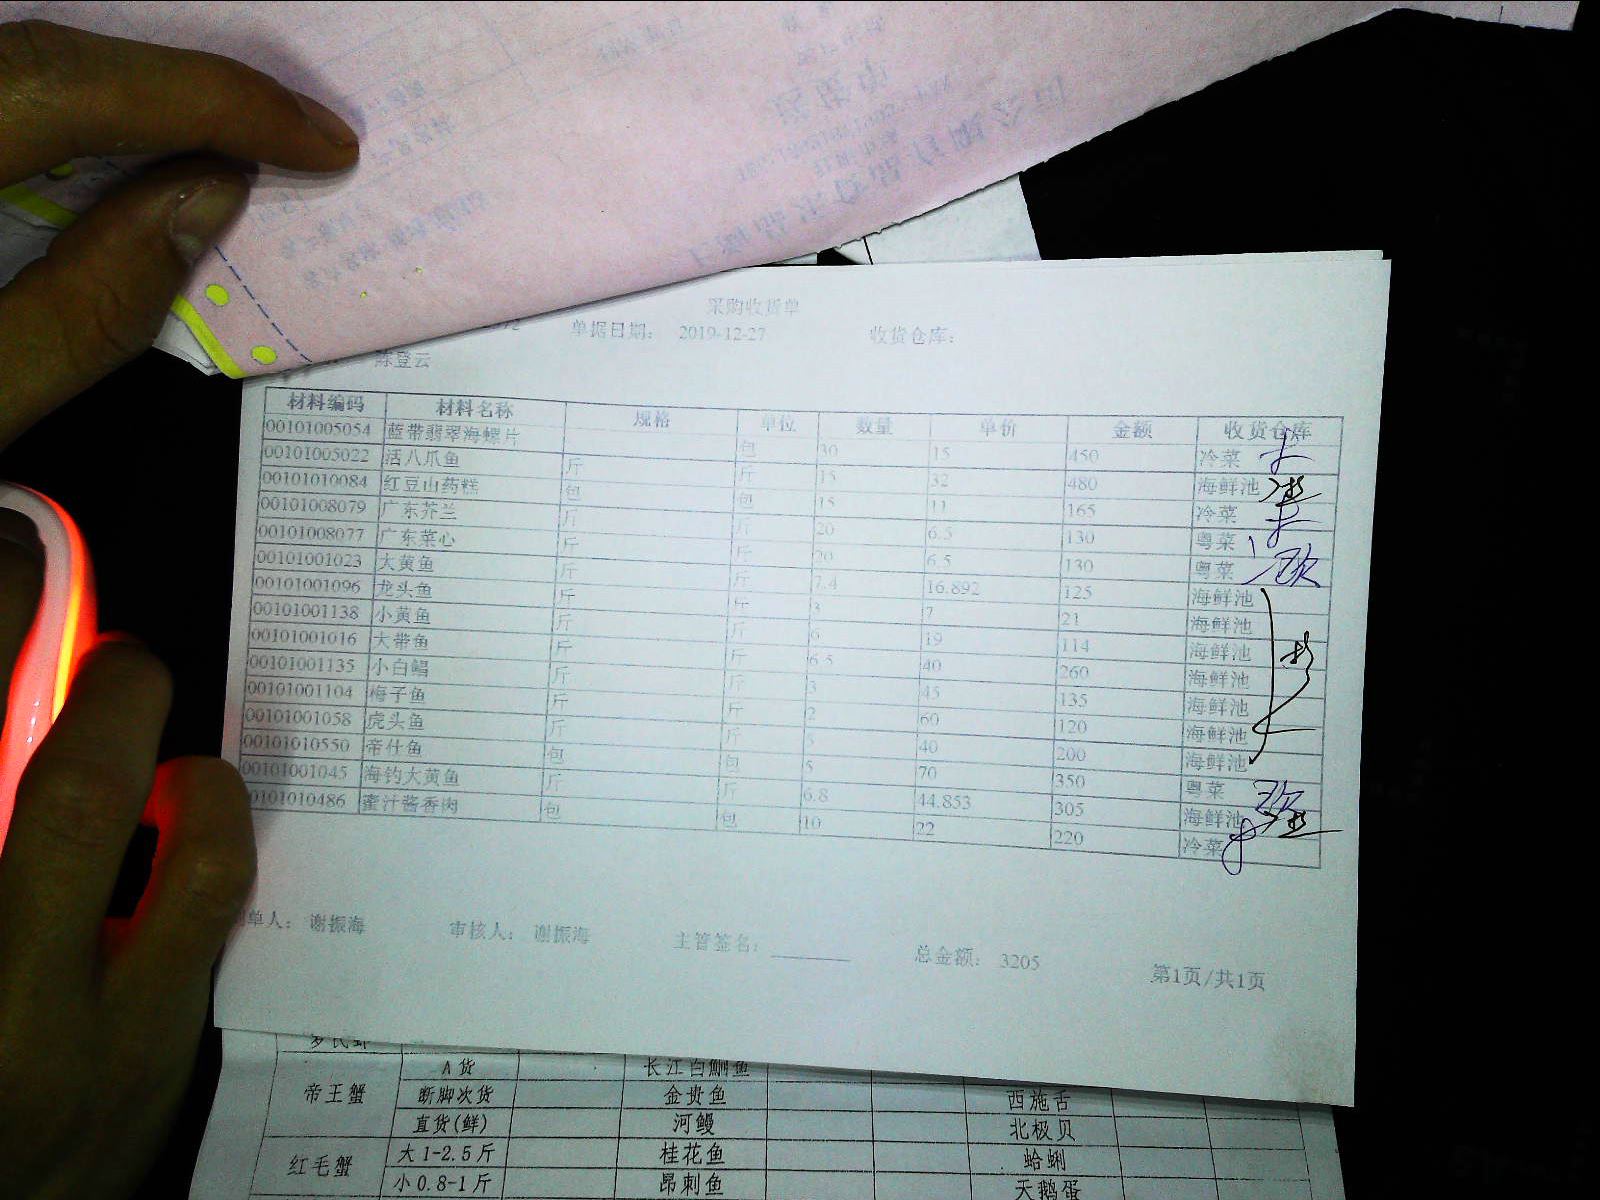 采购收货单
单据日期： 2019-12-27 收货仓库：
陈登云
材料编码 材料名称 规格 单位 数量 单价 金额 收货仓库
00101005054 蓝带翡翠海螺片 包 30 15 450 冷菜
00101005022 活八爪鱼 斤 斤 15 32 480 海鲜池
00101010084 红豆山药糕 包 包 15 11 165 冷菜
00101008079 广东芥兰 斤 斤 20 6.5 130 粤菜
00101008077 广东菜心 斤 斤 20 6.5 130 粤菜
00101001023 大黄鱼 斤 斤 7.4 16.892 125 海鲜池
00101001096 龙头鱼 斤 斤 3 7 21 海鲜池
00101001138 小黄鱼 斤 斤 6 19 114 海鲜池
00101001016 大带鱼 斤 斤 6.5 40 260 海鲜池
00101001135 小白鲳 斤 斤 3 45 135 海鲜池
00101001104 梅子鱼 斤 斤 2 60 120 海鲜池
00101001058 虎头鱼 斤 斤 5 40 200 海鲜池
00101010550 帝仕鱼 包 包 5 70 350 粤菜
00101001045 海钓大黄鱼 斤 斤 6.8 44.853 305 海鲜池
0101010486 蜜汁酱香肉 包 包 10 22 220 冷菜
单人： 谢振海 审核人： 谢振海 主管签名： 总金额： 3205
第1页/共1页
A货 长江白鮰鱼
帝王蟹 断脚次货 金贵鱼 西施舌
直货(鲜) 河鳗 北极贝
红毛蟹 大1-2.5斤 桂花鱼 蛤蜊
小0.8-1斤 昂刺鱼 天鹅蛋